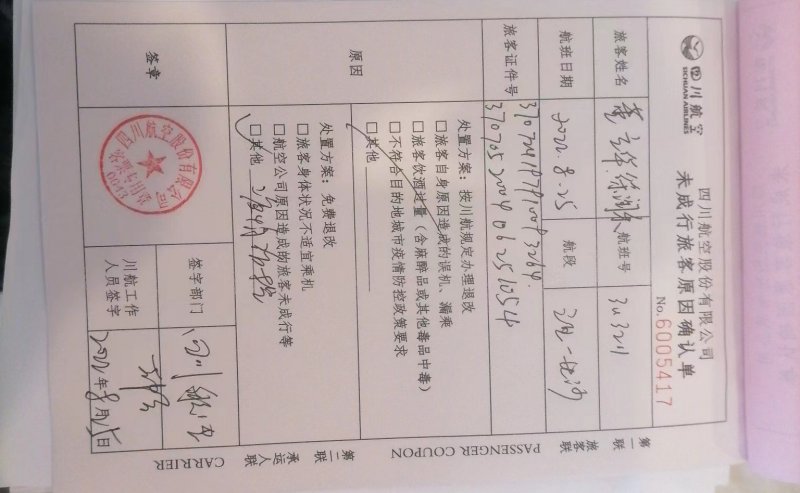 四川航空
SICHUAN AIRLINES
四川航空股份有限公司
未成行旅客原因确认单
No. 6005417
旅客姓名
航班号
3U3211
航班日期
2022.8.25
航段
旅客证件号
370705200406251054
原因
处置方案：按川航规定办理退改
□旅客自身原因造成的误机、漏乘
□旅客饮酒过量（含麻醉品或其他毒品中毒）
□不符合目的地城市疫情防控政策要求
□其他
处置方案：免费退改
□旅客身体状况不适宜乘机
□航空公司原因造成的旅客未成行等
□其他
签章
四川航空股份有限公司
签字部门
川航工作
人员签字
2022年8月25日
第一联
旅客联
PASSENGER COUPON
第二联
承运人联
CARRIER